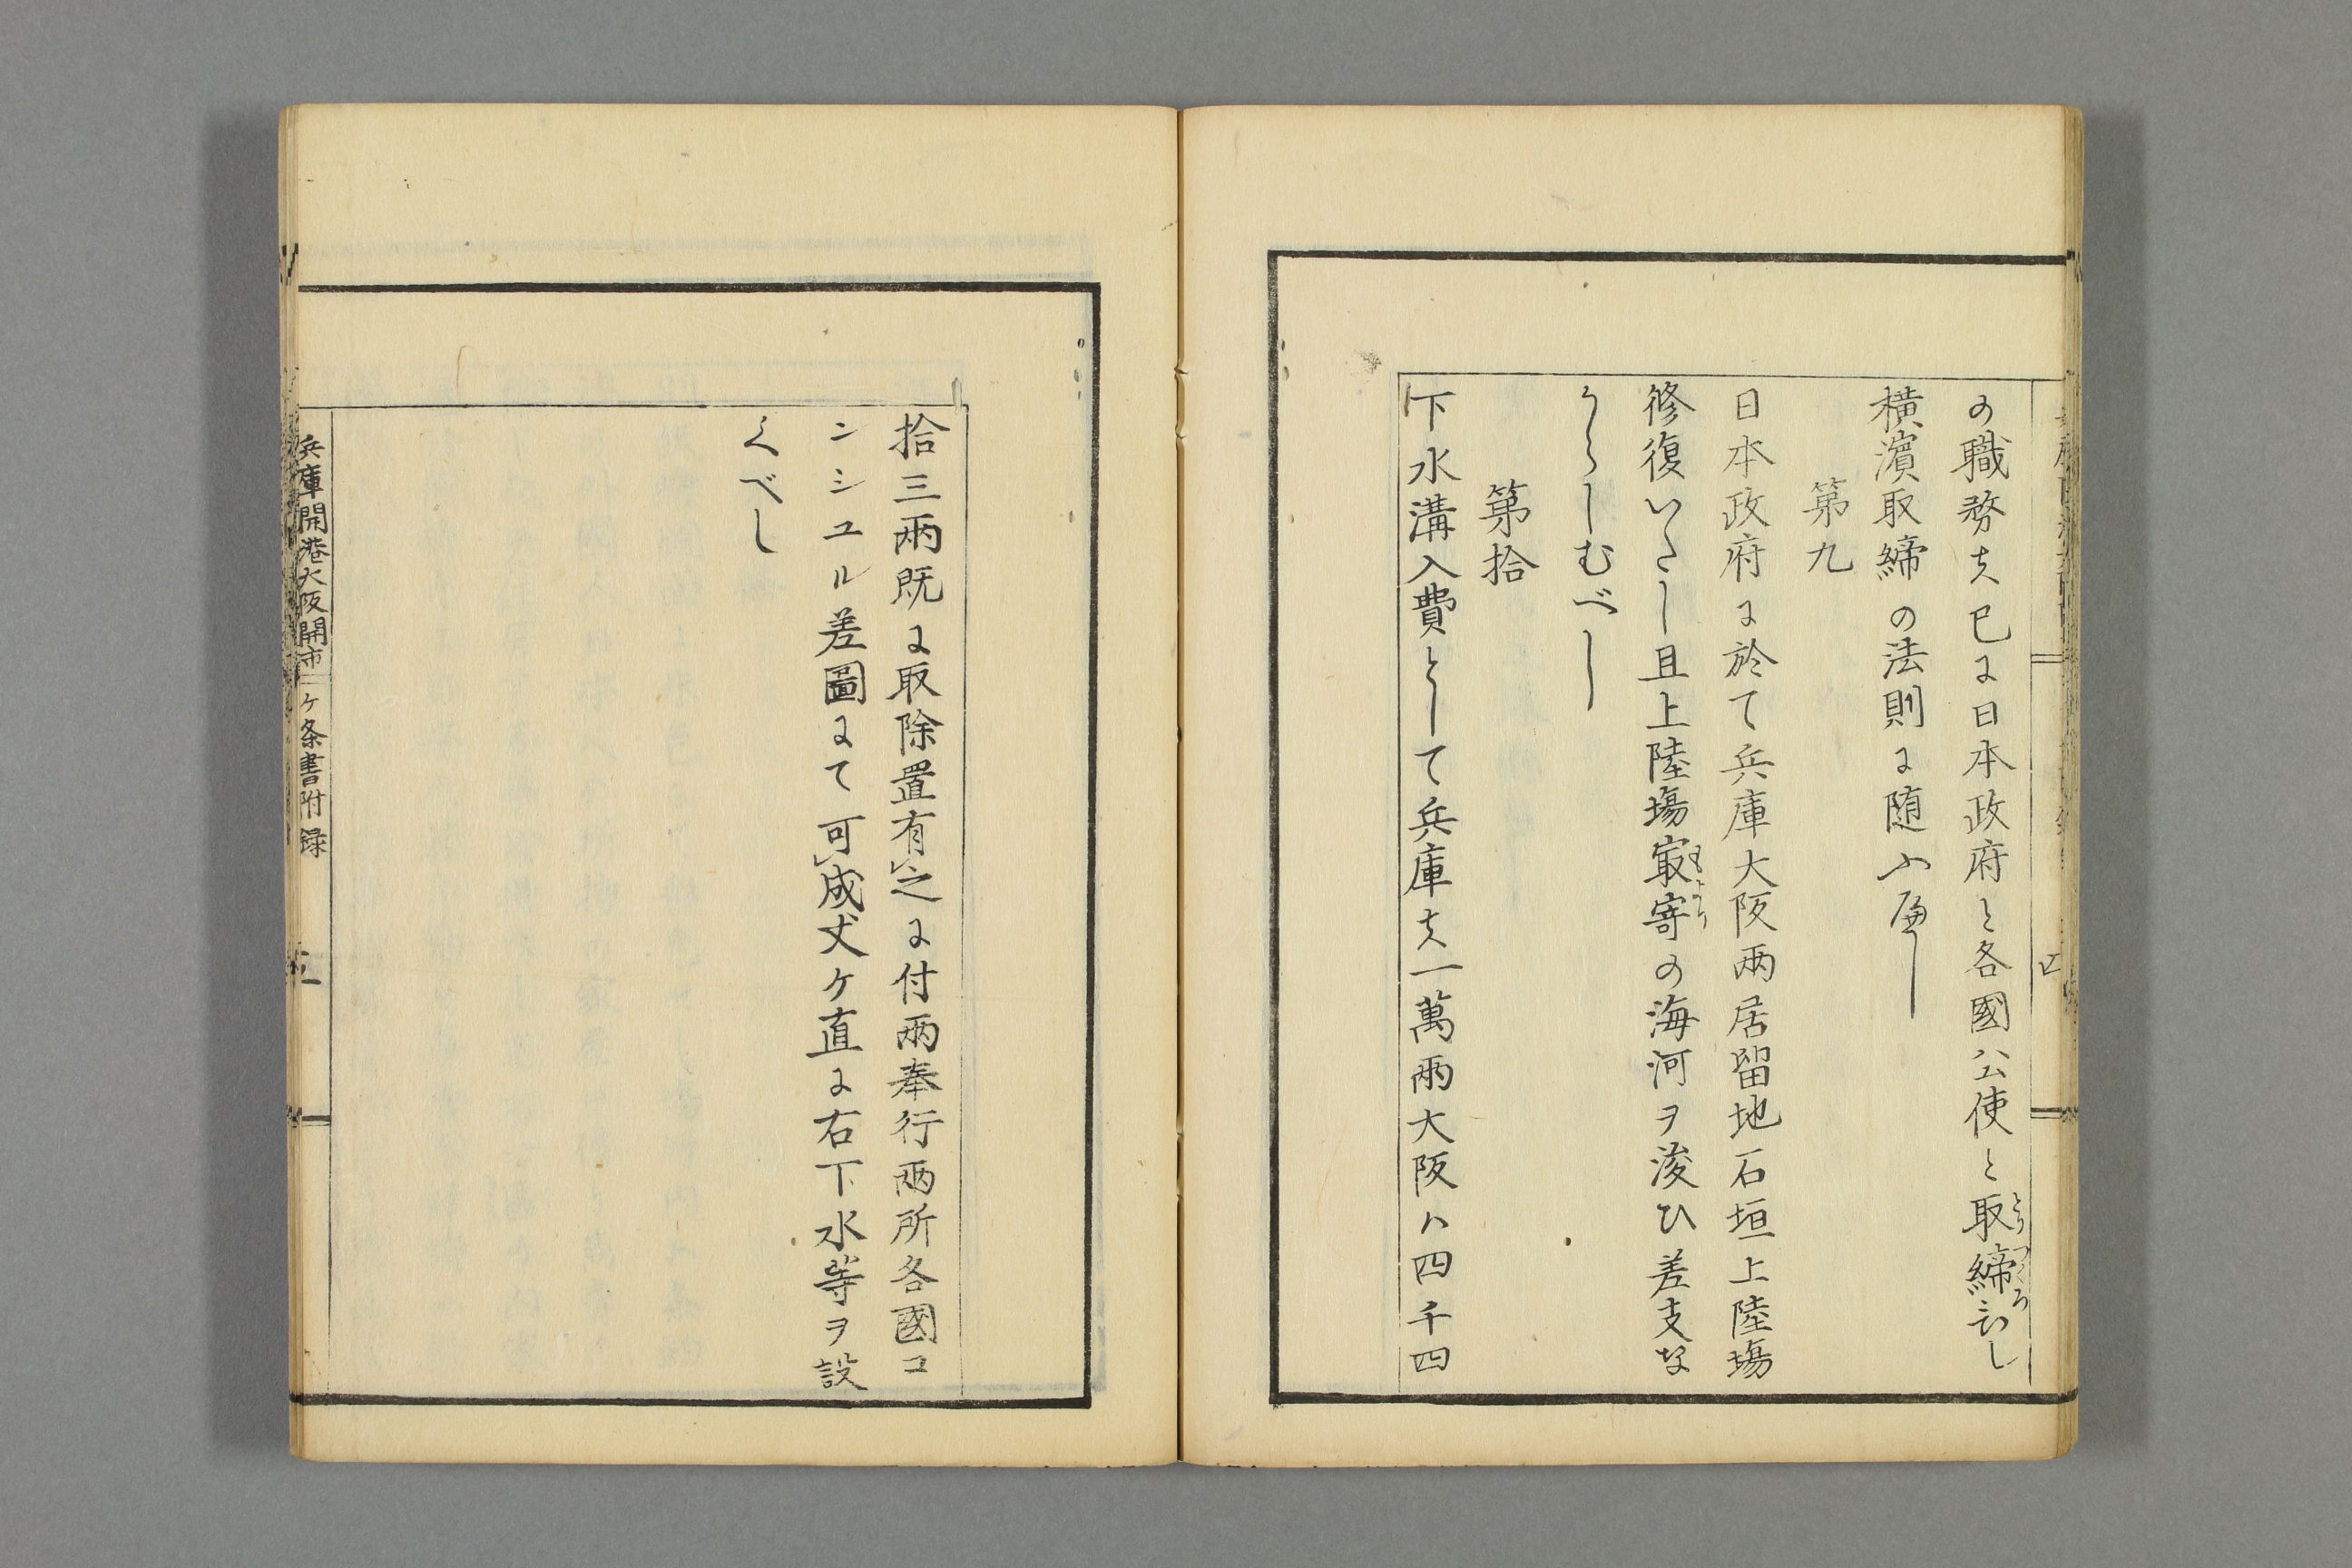 の職務ハ已に日本政府と各國公使と取締
横濱取締の法則に随ふ
第九
日本政府に於て兵庫大阪両居留地石垣上陸場
修復いたし且上陸場㝡寄の海河ヲ浚ひ差支な
からしむべし
第拾
下水溝入費として兵庫ハ一萬両大阪ハ四千四
拾三両既に取除置有之に付両奉行両所各國コ
ンシユル差圖にて可成丈ケ直に右下水等ヲ設
くべし
兵庫開港大阪開市ケ条書附録